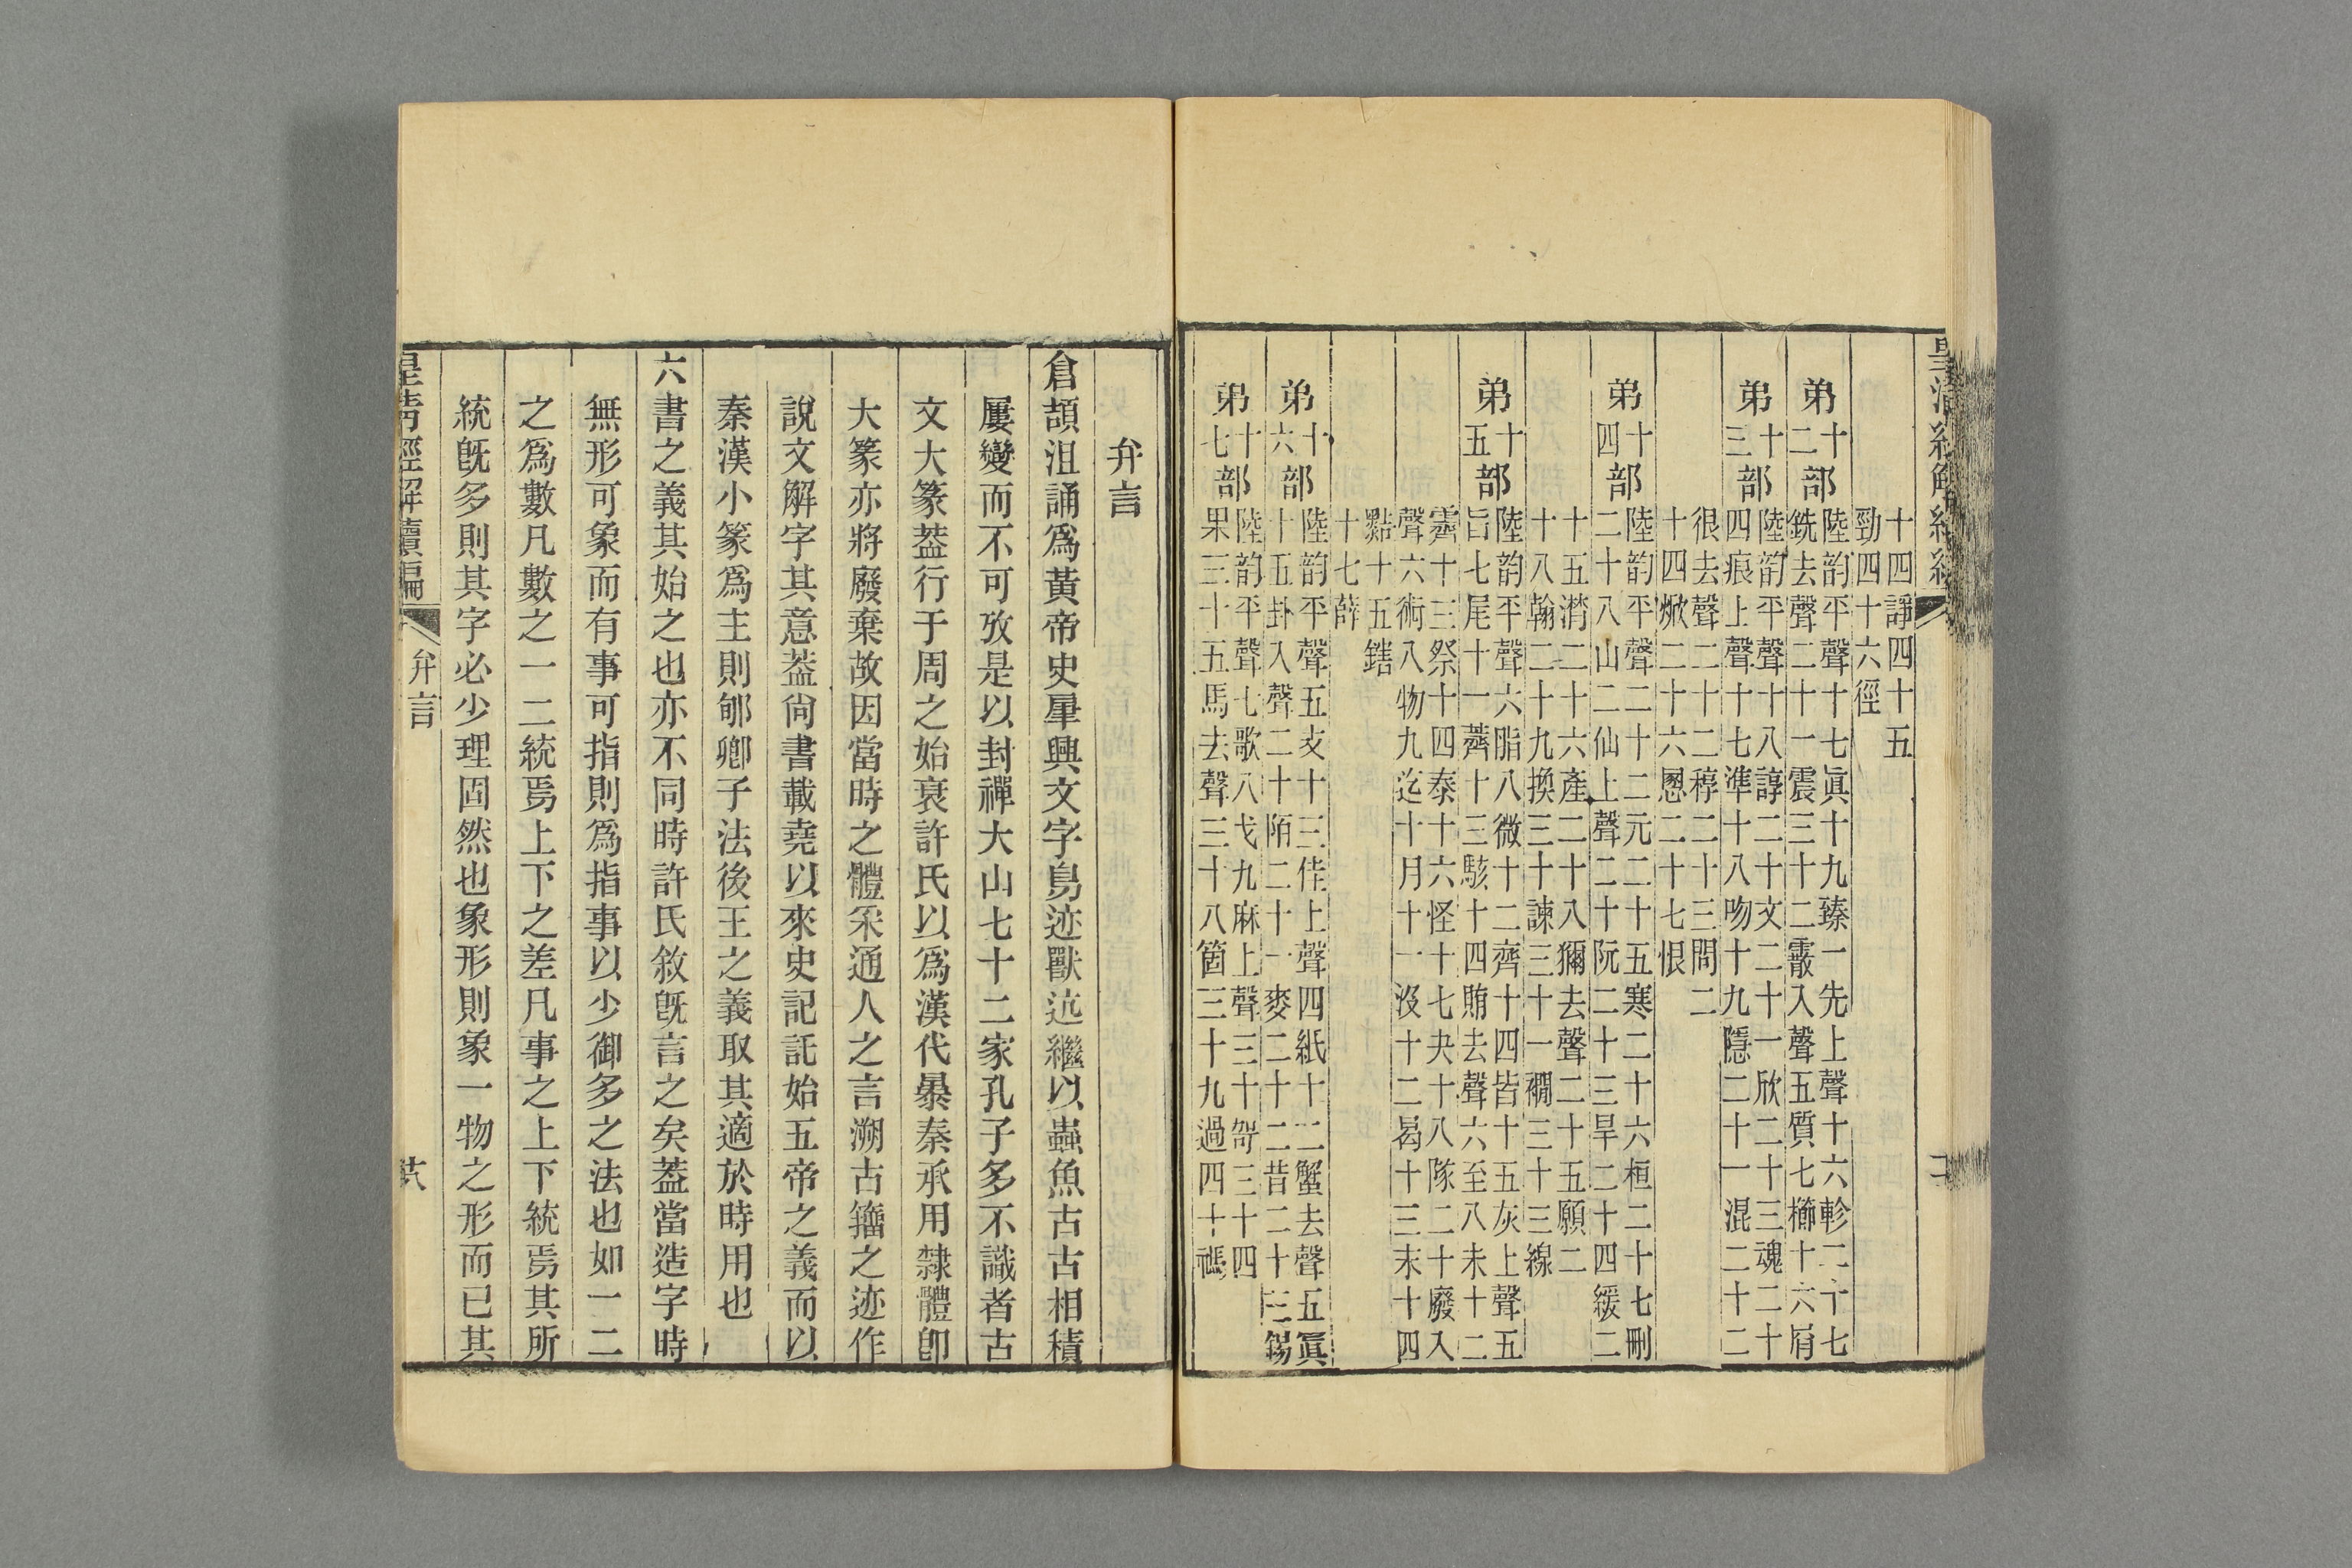 皇清經解續編
十四諍四十五
勁四十六徑
弟十二部陸韵平聲十七眞十九臻一先上聲十六軫二十七
銑去聲二十一震三十二霰入聲五質七櫛十六屑
弟十三部陸韵平聲十八諄二十文二十一欣二十三魂二十
四痕上聲十七準十八吻十九隱二十一混二十二
很去聲二十二稕二十三問二
十四焮二十六慁二十七恨
弟十四部陸韵平聲二十二元二十五寒二十六桓二十七刪
二十八山二仙上聲二十阮二十三旱二十四緩二
十五潸二十六產二十八獮去聲二十五願二
十八翰二十九換三十諫三十一襉三十三線
弟十五部陸韵平聲六脂八微十二齊十四皆十五灰上聲五
旨七尾十一薺十三駭十四賄去聲六至八未十二
霽十三祭十四泰十六怪十七夬十八隊二十廢入
聲六術八物九迄十月十一沒十二曷十三末十四
黠十五鎋
十七薛
弟十六部陸韵平聲五支十三佳上聲四紙十二蟹去聲五寘
十五卦入聲二十陌二十一麥二十二昔二十三錫
弟十七部陸韵平聲七歌八戈九麻上聲三十哿三十四
果三十五馬去聲三十八箇三十九過四十禡
弁言
倉頡沮誦爲黃帝史肇興文字鳥迹獸迒繼以蟲魚古古相積
屢變而不可攷是以封禪大山七十二家孔子多不識者古
文大篆葢行于周之始衰許氏以爲漢代㬥秦承用隸體卽
大篆亦將廢棄故因當時之體采通人之言溯古籀之迹作
說文解字其意葢尙書載堯以來史記託始五帝之義而以
秦漢小篆爲主則郇卿子法後王之義取其適於時用也
六書之義其始之也亦不同時許氏敘旣言之矣葢當造字時
無形可象而有事可指則爲指事以少御多之法也如一二
之爲數凡數之一二統焉上下之差凡事之上下統焉其所
統旣多則其字必少理固然也象形則象一物之形而已其
皇淸經解續編
弁言